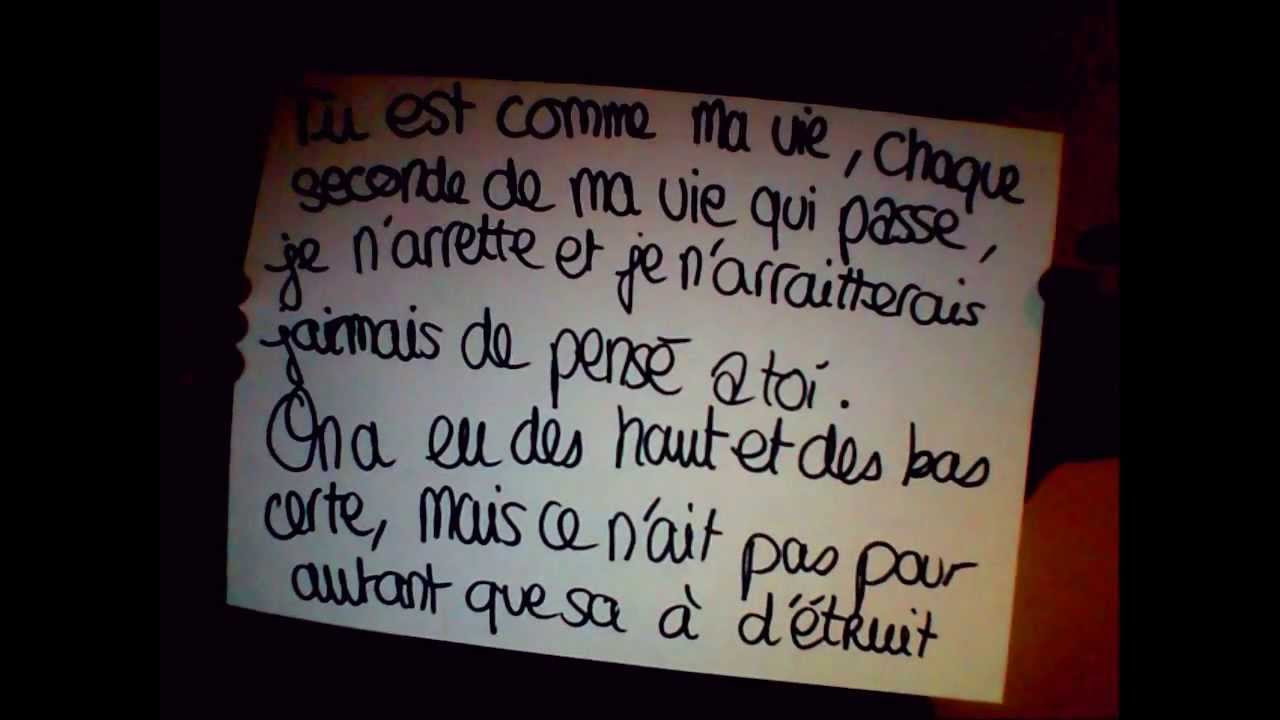 Tu est comme ma vie, chaque
seconde de ma vie qui passe,
je n'arrette et je n'arraitterais
jaimais de pensé a toi.
On a eu des haut et des bas
certe, mais ce n'ait pas pour
autant que sa à d'étruit